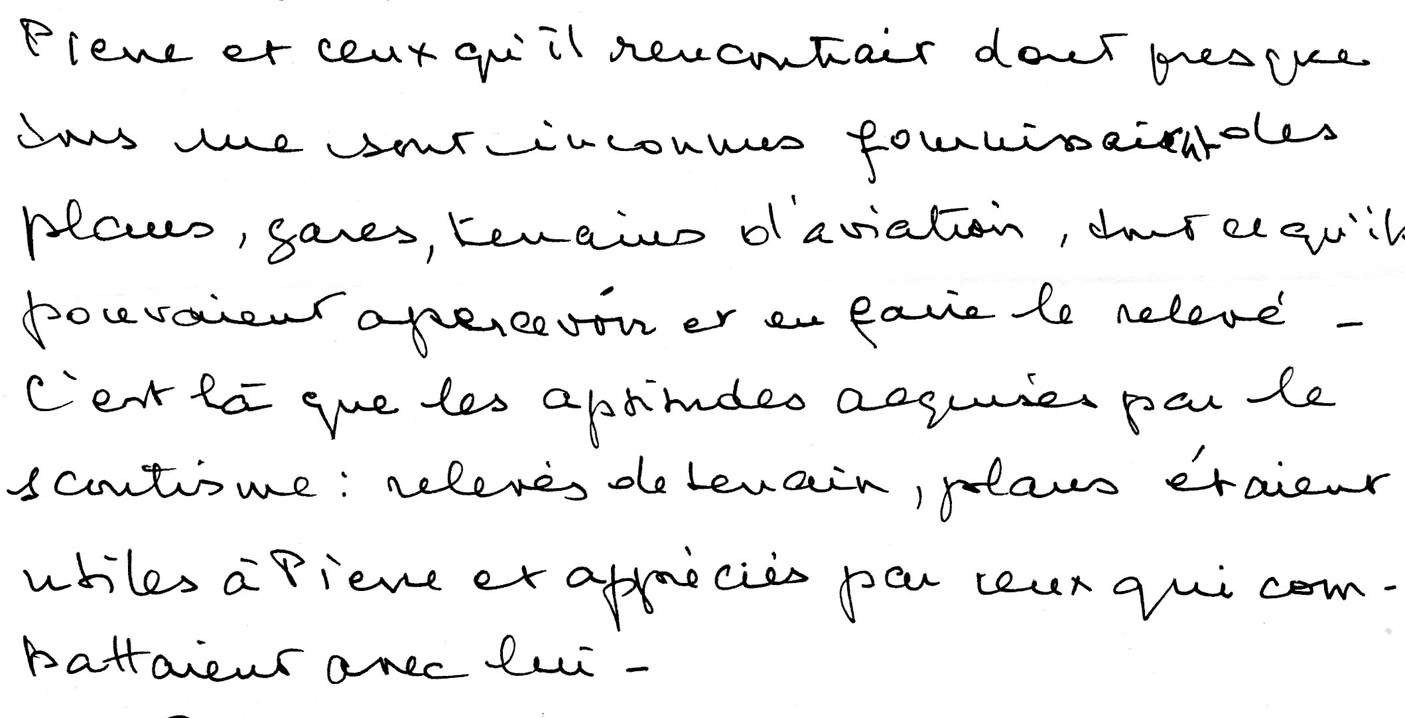 Pierre et ceux qu'il rencontrait dont presque
tous me sont inconnus fournissaient des
plans, gares, terrains d'aviation, tout ce qu'ils
pouvaient apercevoir et en faire le relevé -
C'est là que les aptitudes acquises par le
scoutisme : relevés de terrain, plans étaient
utiles à Pierre et appréciés par ceux qui com-
battaient avec lui -